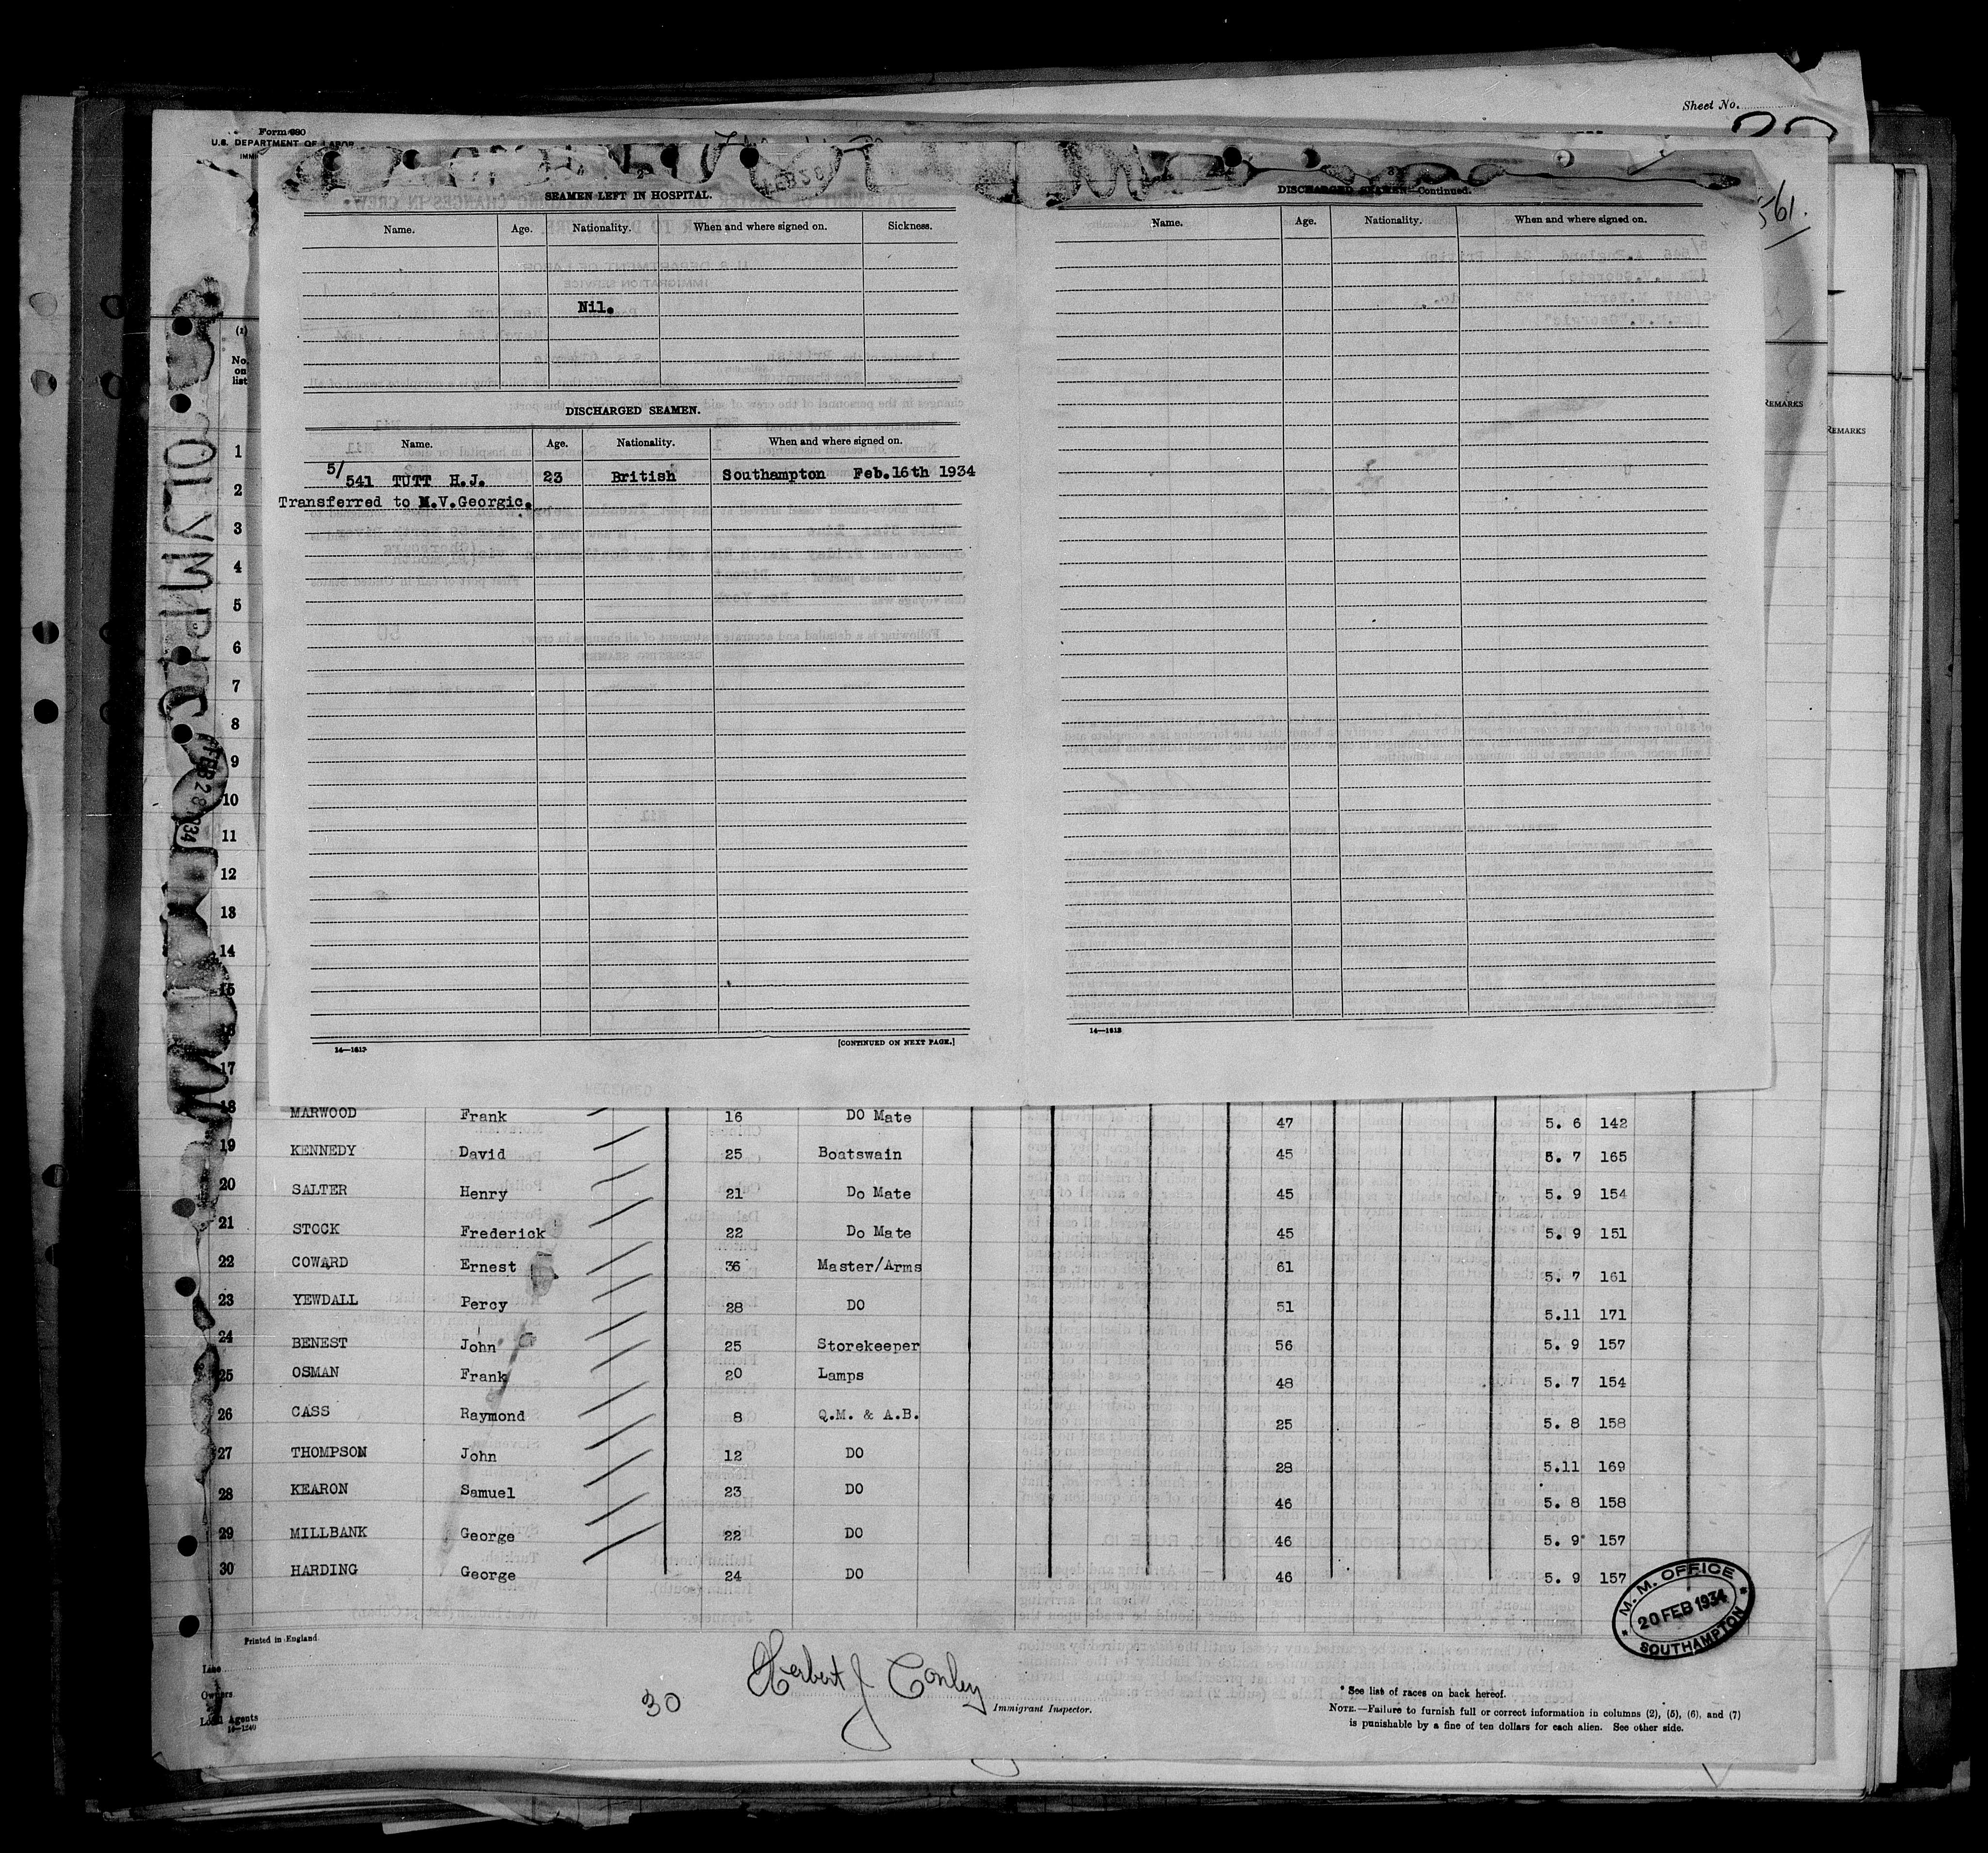 Sheet No.
Form 680
U.S. DEPARTMENT OF LABOR
561.
SEAMEN LEFT IN HOSPITAL.
Name. Age. Nationality. When and where signed on. Sickness.
Nil.
DISCHARGED SEAMEN.
Name. Age. Nationality. When and where signed on.
5/541 TUTT H.J. 23 British Southampton Feb.16th 1934
Transferred to M.V.Georgic.
14—1613 [CONTINUED ON NEXT PAGE.]
DISCHARGED SEAMEN—Continued.
Name. Age. Nationality. When and where signed on.
14—1613
REMARKS
REMARKS
OLYMPIC
FEB 28 1934
(1)
No. on list
1
2
3
4
5
6
7
8
9
10
11
12
13
14
15
16
17
18 MARWOOD Frank 16 DO Mate 47 5. 6 142
19 KENNEDY David 25 Boatswain 45 5. 7 165
20 SALTER Henry 21 Do Mate 45 5. 9 154
21 STOCK Frederick 22 Do Mate 45 5. 9 151
22 COWARD Ernest 36 Master/Arms 61 5. 7 161
23 YEWDALL Percy 28 DO 51 5.11 171
24 BENEST John 25 Storekeeper 56 5. 9 157
25 OSMAN Frank 20 Lamps 48 5. 7 154
26 CASS Raymond 8 Q.M. & A.B. 25 5. 8 158
27 THOMPSON John 12 DO 28 5.11 169
28 KEARON Samuel 23 DO 46 5. 8 158
29 MILLBANK George 22 DO 46 5. 9 157
30 HARDING George 24 DO 46 5. 9 157
M. M. OFFICE
20 FEB 1934
SOUTHAMPTON
Printed in England
Line
Owners
Local Agents
14—1240
30
Herbert J Conley
Immigrant Inspector.
* See list of races on back hereof.
NOTE.—Failure to furnish full or correct information in columns (2), (5), (6), and (7)
is punishable by a fine of ten dollars for each alien. See other side.